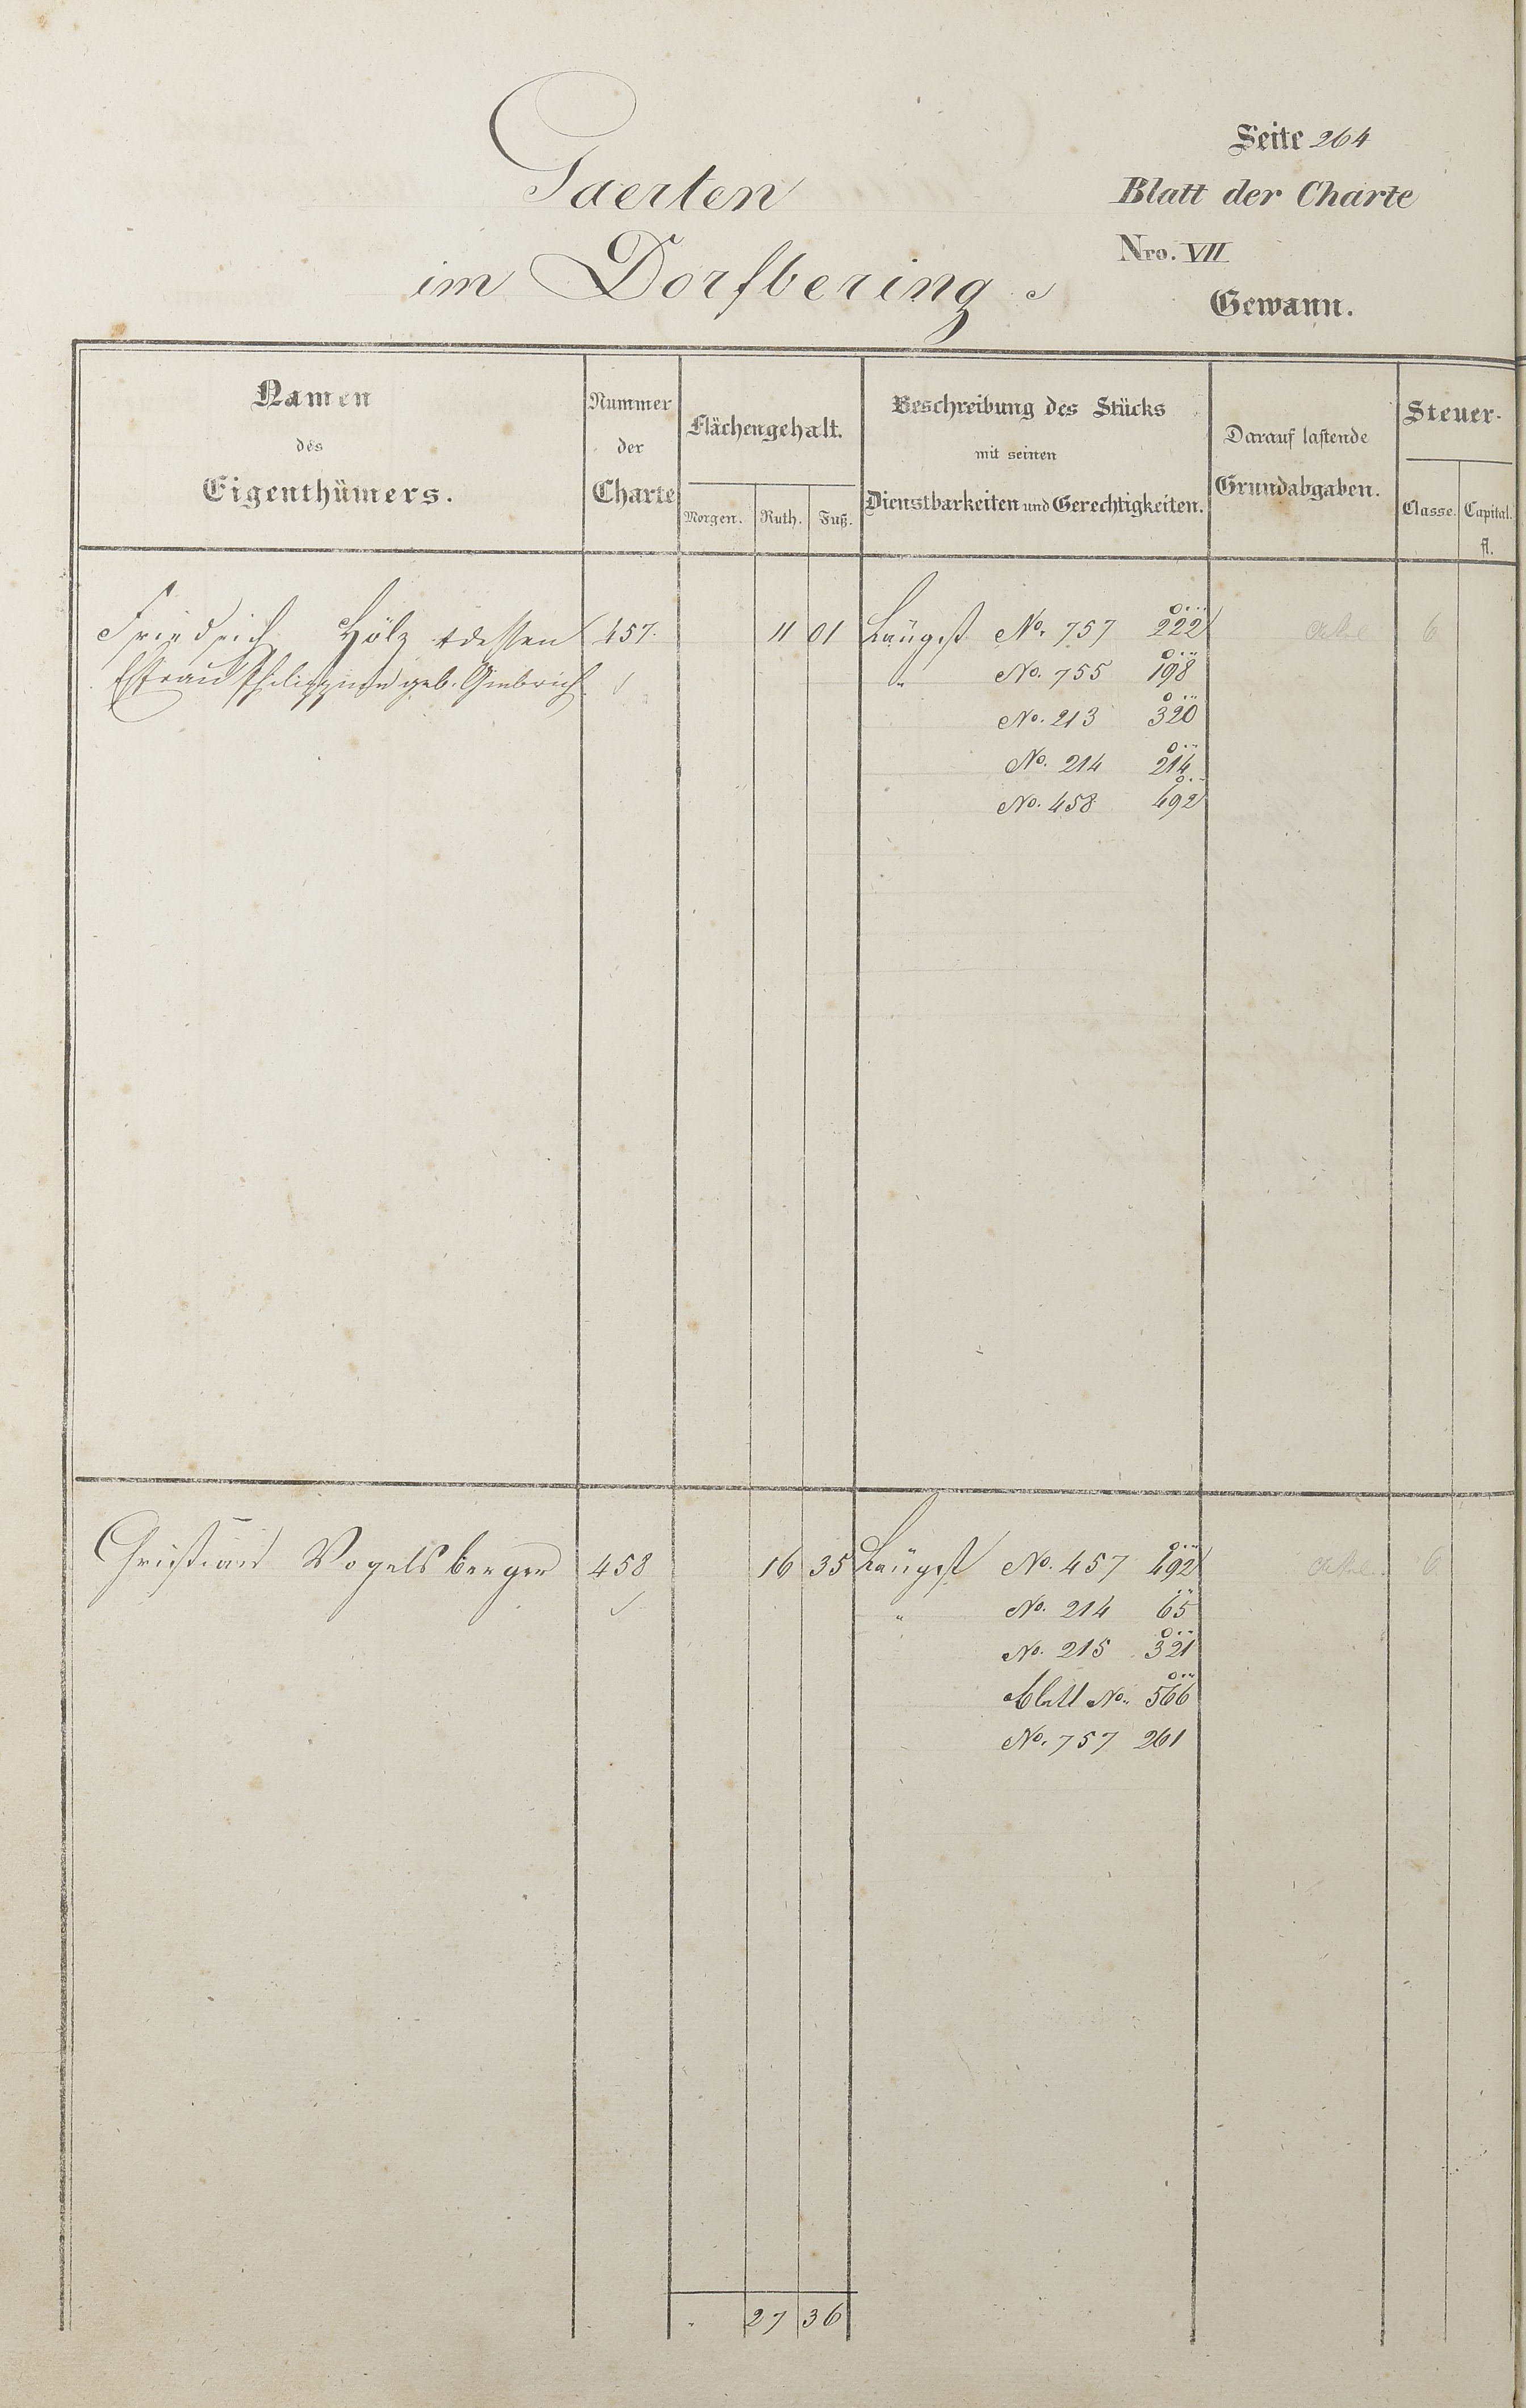 Seite 264
Gaerten
Blatt der Charte
im Dorfbering
Nro. VII
Gewann.
Namen
des
Eigenthümers.
Nummer
der
Charte
Flächengehalt.
Morgen. Ruth. Fuß.
Beschreibung des Stücks
mit seinen
Dienstbarkeiten und Gerechtigkeiten.
Darauf lastende
Grundabgaben.
Steuer-
Classe. Capital.
fl.
Friedrich Hölz + dessen 457. 11 01 Längst No. 757 222 6
Ehfrau Philippine geb. " No. 755 198
No. 213 320
No. 214 214
No. 458 492
Christian Vogelsberger 458 16 35 Längst No. 457 492 6
" No. 214 65
No. 215 321
No. 566
No. 757 261
27 36